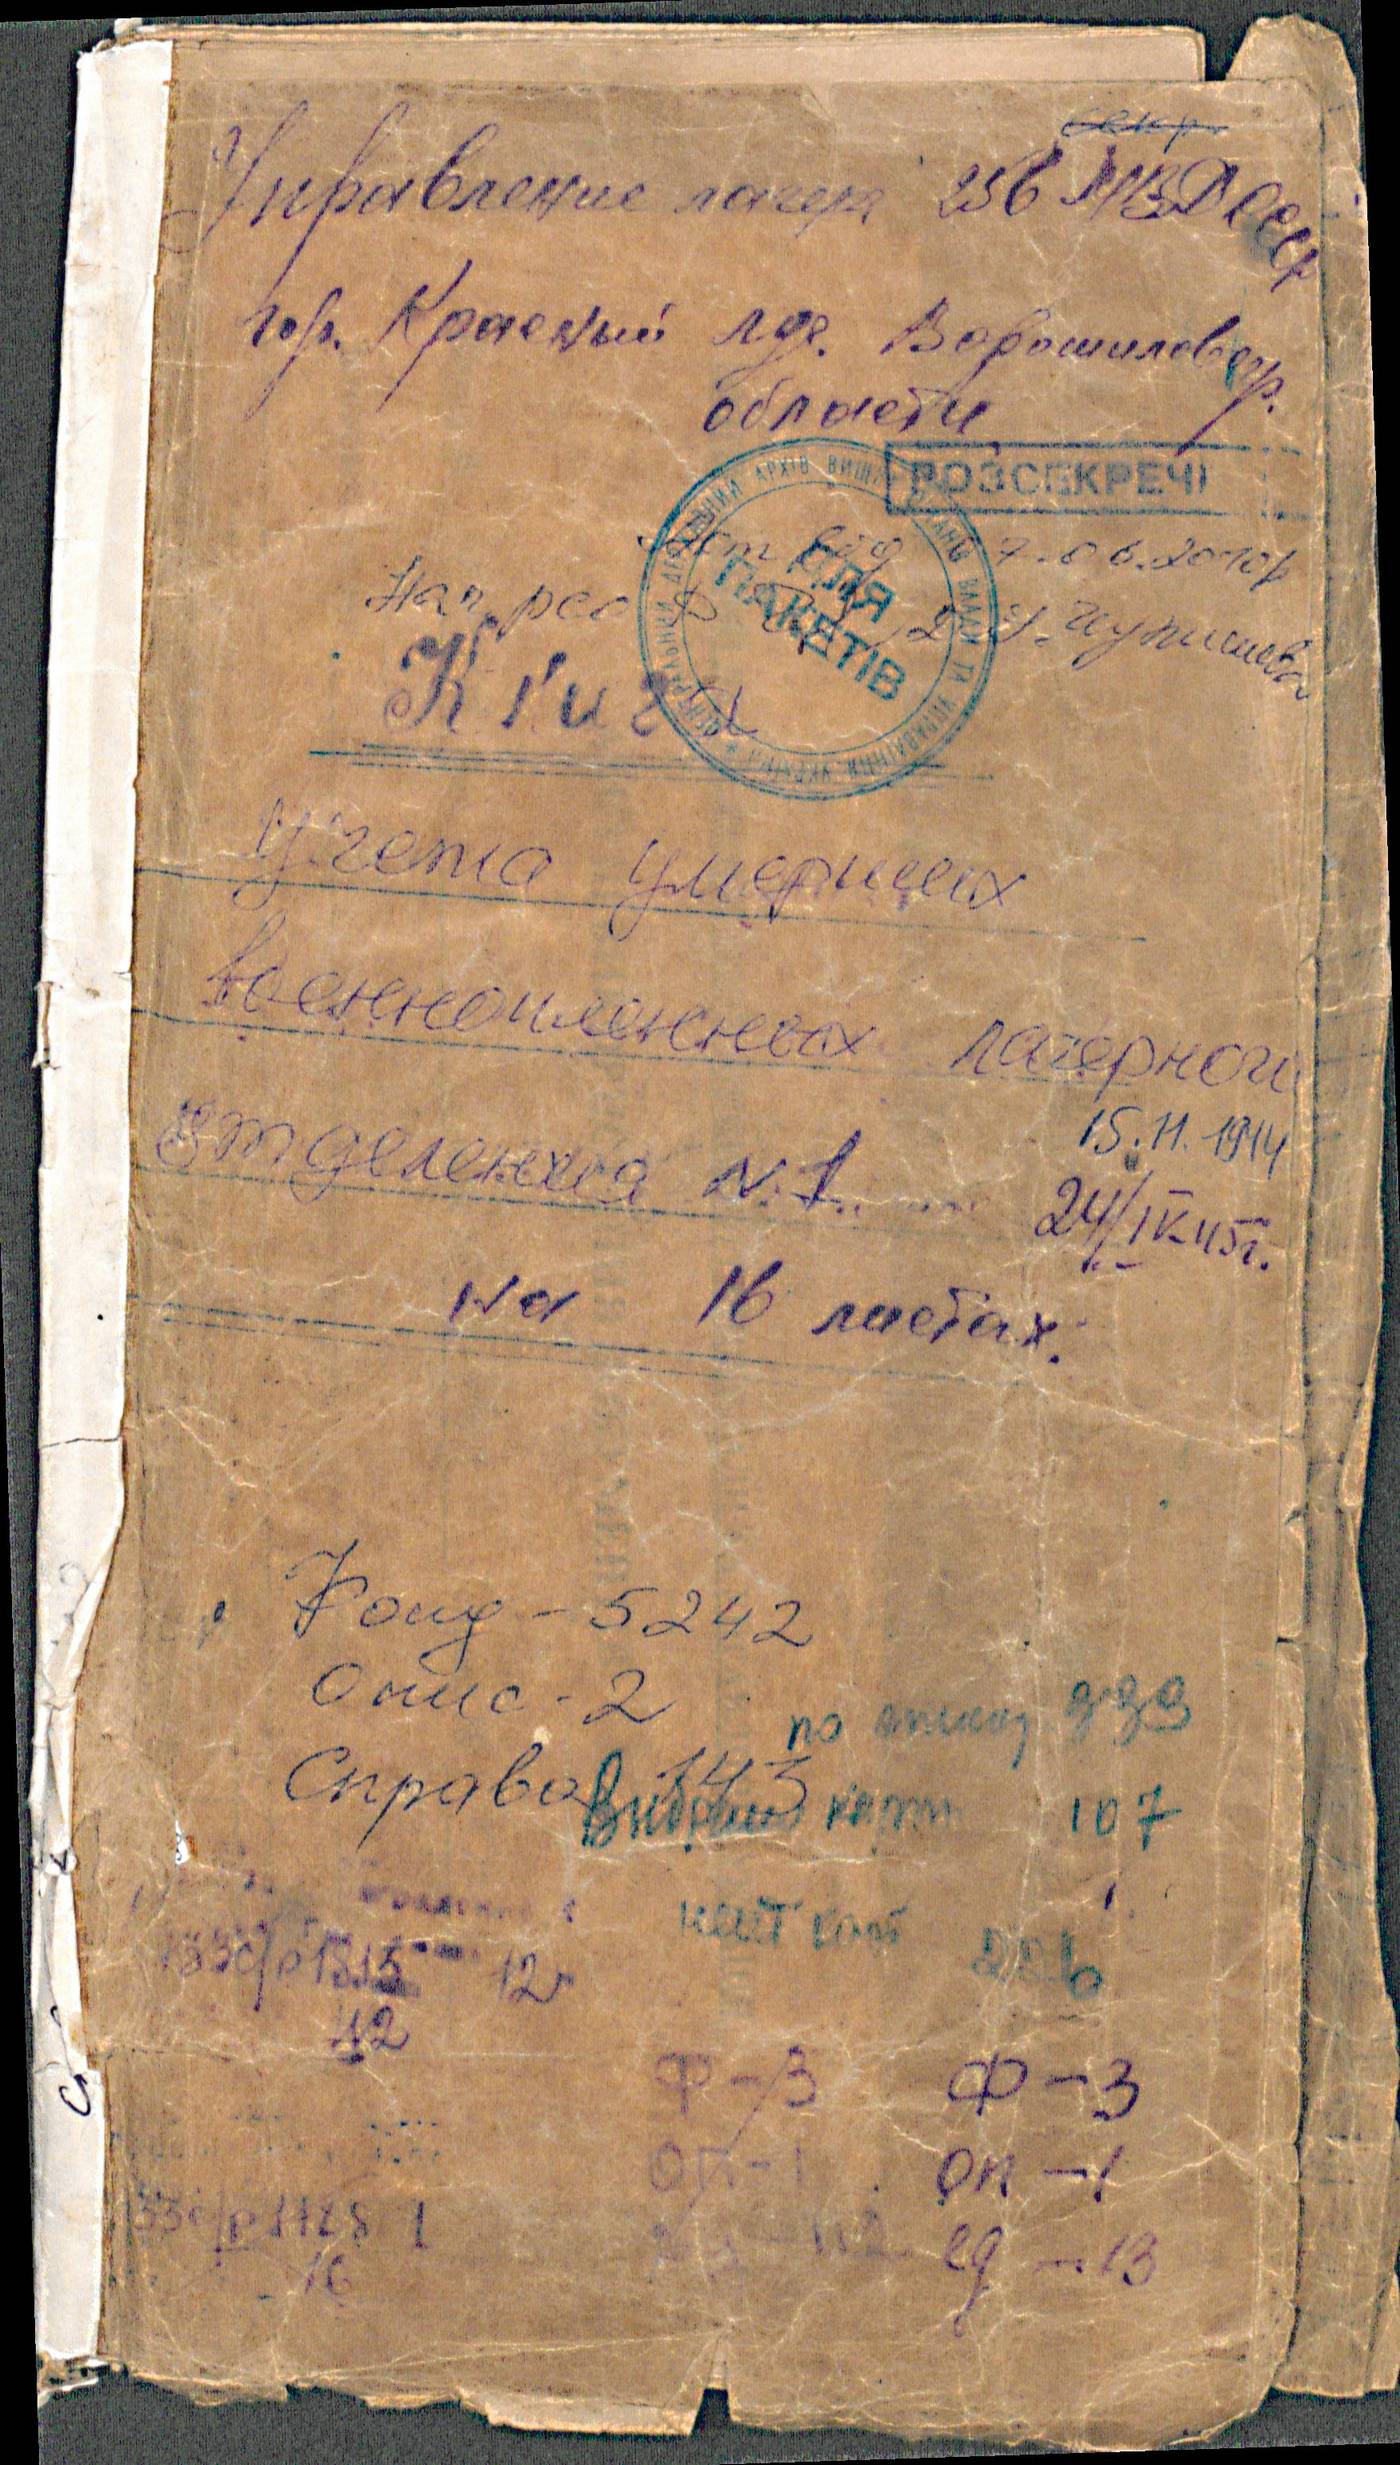 секр.
Управление лагеря 256 МВД СССР
гор. Красный луч. Ворошиловгр.
области
РОЗСЕКРЕЧ
Акт від 7.06.2010р
ЦЕНТРАЛЬНИЙ ДЕРЖАВНИЙ АРХІВ ВИЩИХ ОРГАНІВ ВЛАДИ ТА УПРАВЛІННЯ УКРАЇНИ
ДЛЯ
ПАКЕТІВ
Книга
Учета умерших
военнопленных лагерного
отделения N 1
15.11.1944
24/IX-45г.
на 16 листах.
Фонд - 5242
Опис - 2
Справа 143
по списку
карт 107
нет карт
12
42
Ф-3
Ф-3
оп-1
оп-1
ед -13
16